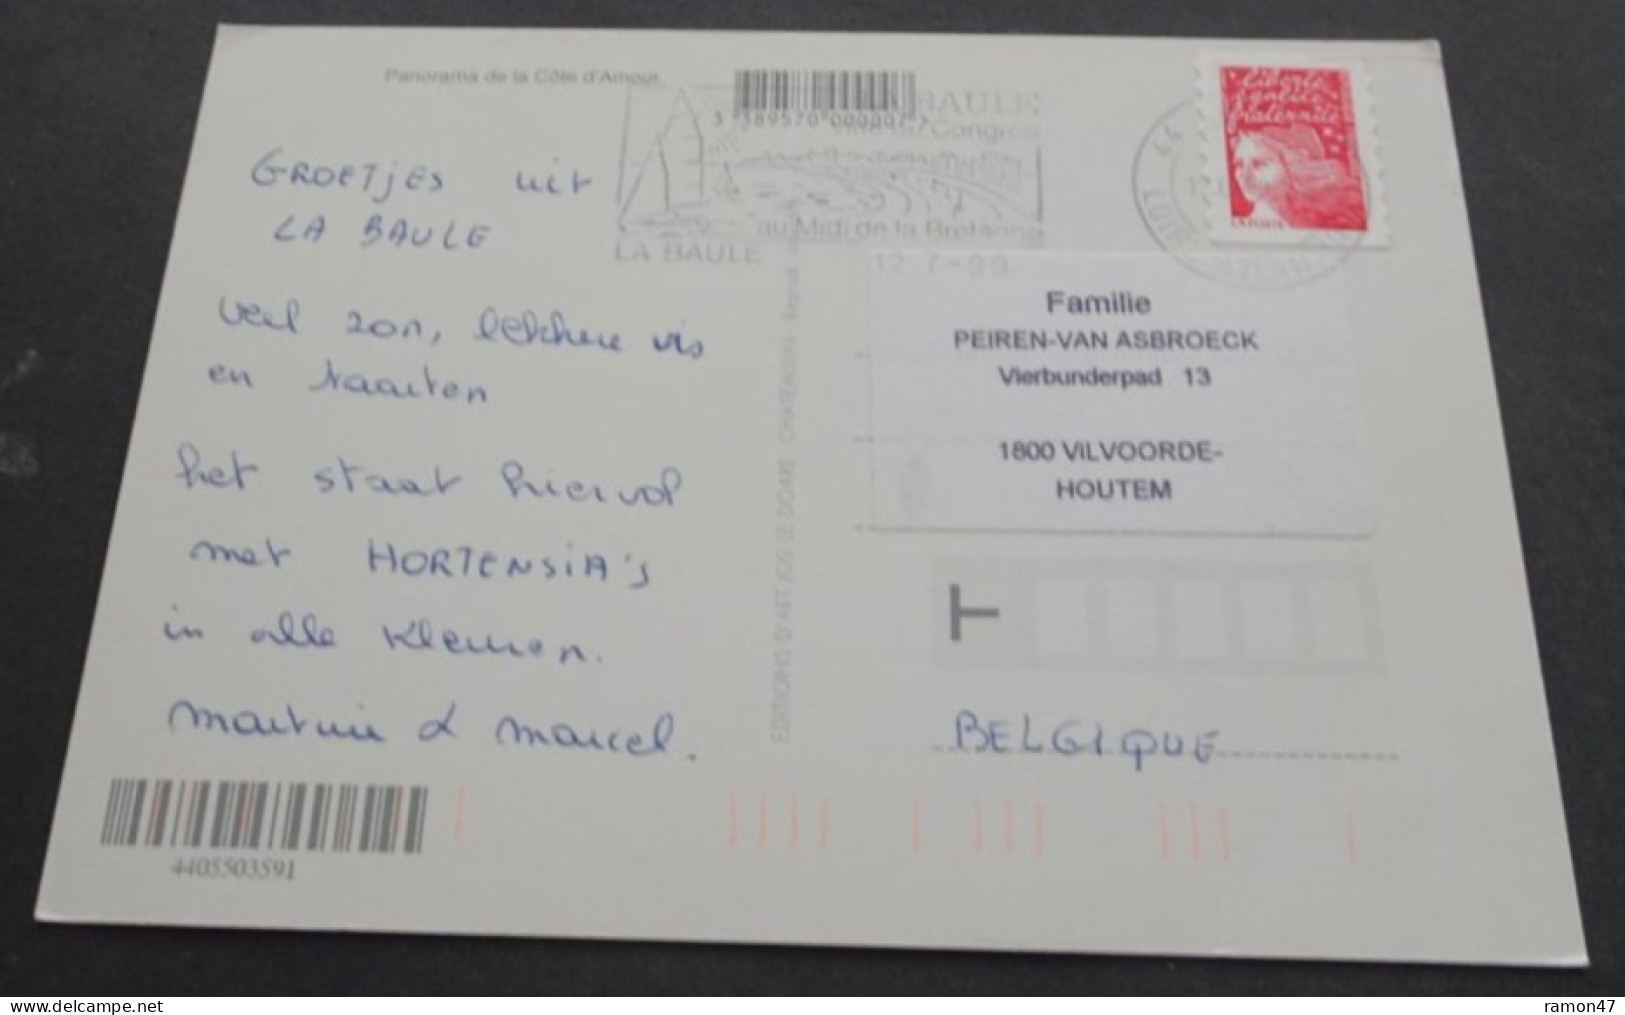 Panorama de la Côte d'Amour
3 389570 000007 >
BAULE
Congrès
au Midi de la Bretagne
LA BAULE
12-7-99
44
LOIRE
liberté
égalité
fraternité
LA POSTE
GROETJES uit
LA BAULE
veel zon, lekkere vis
en taarten
het staat hier vol
met HORTENSIA's
in alle kleuren.
Martine & Marcel.
EDITIONS D'ART JOS LE DOARE, CHATEAULIN
Familie
PEIREN-VAN ASBROECK
Vierbunderpad 13
1800 VILVOORDE-
HOUTEM
T
BELGIQUE
4405503591
www.delcampe.net
ramon47